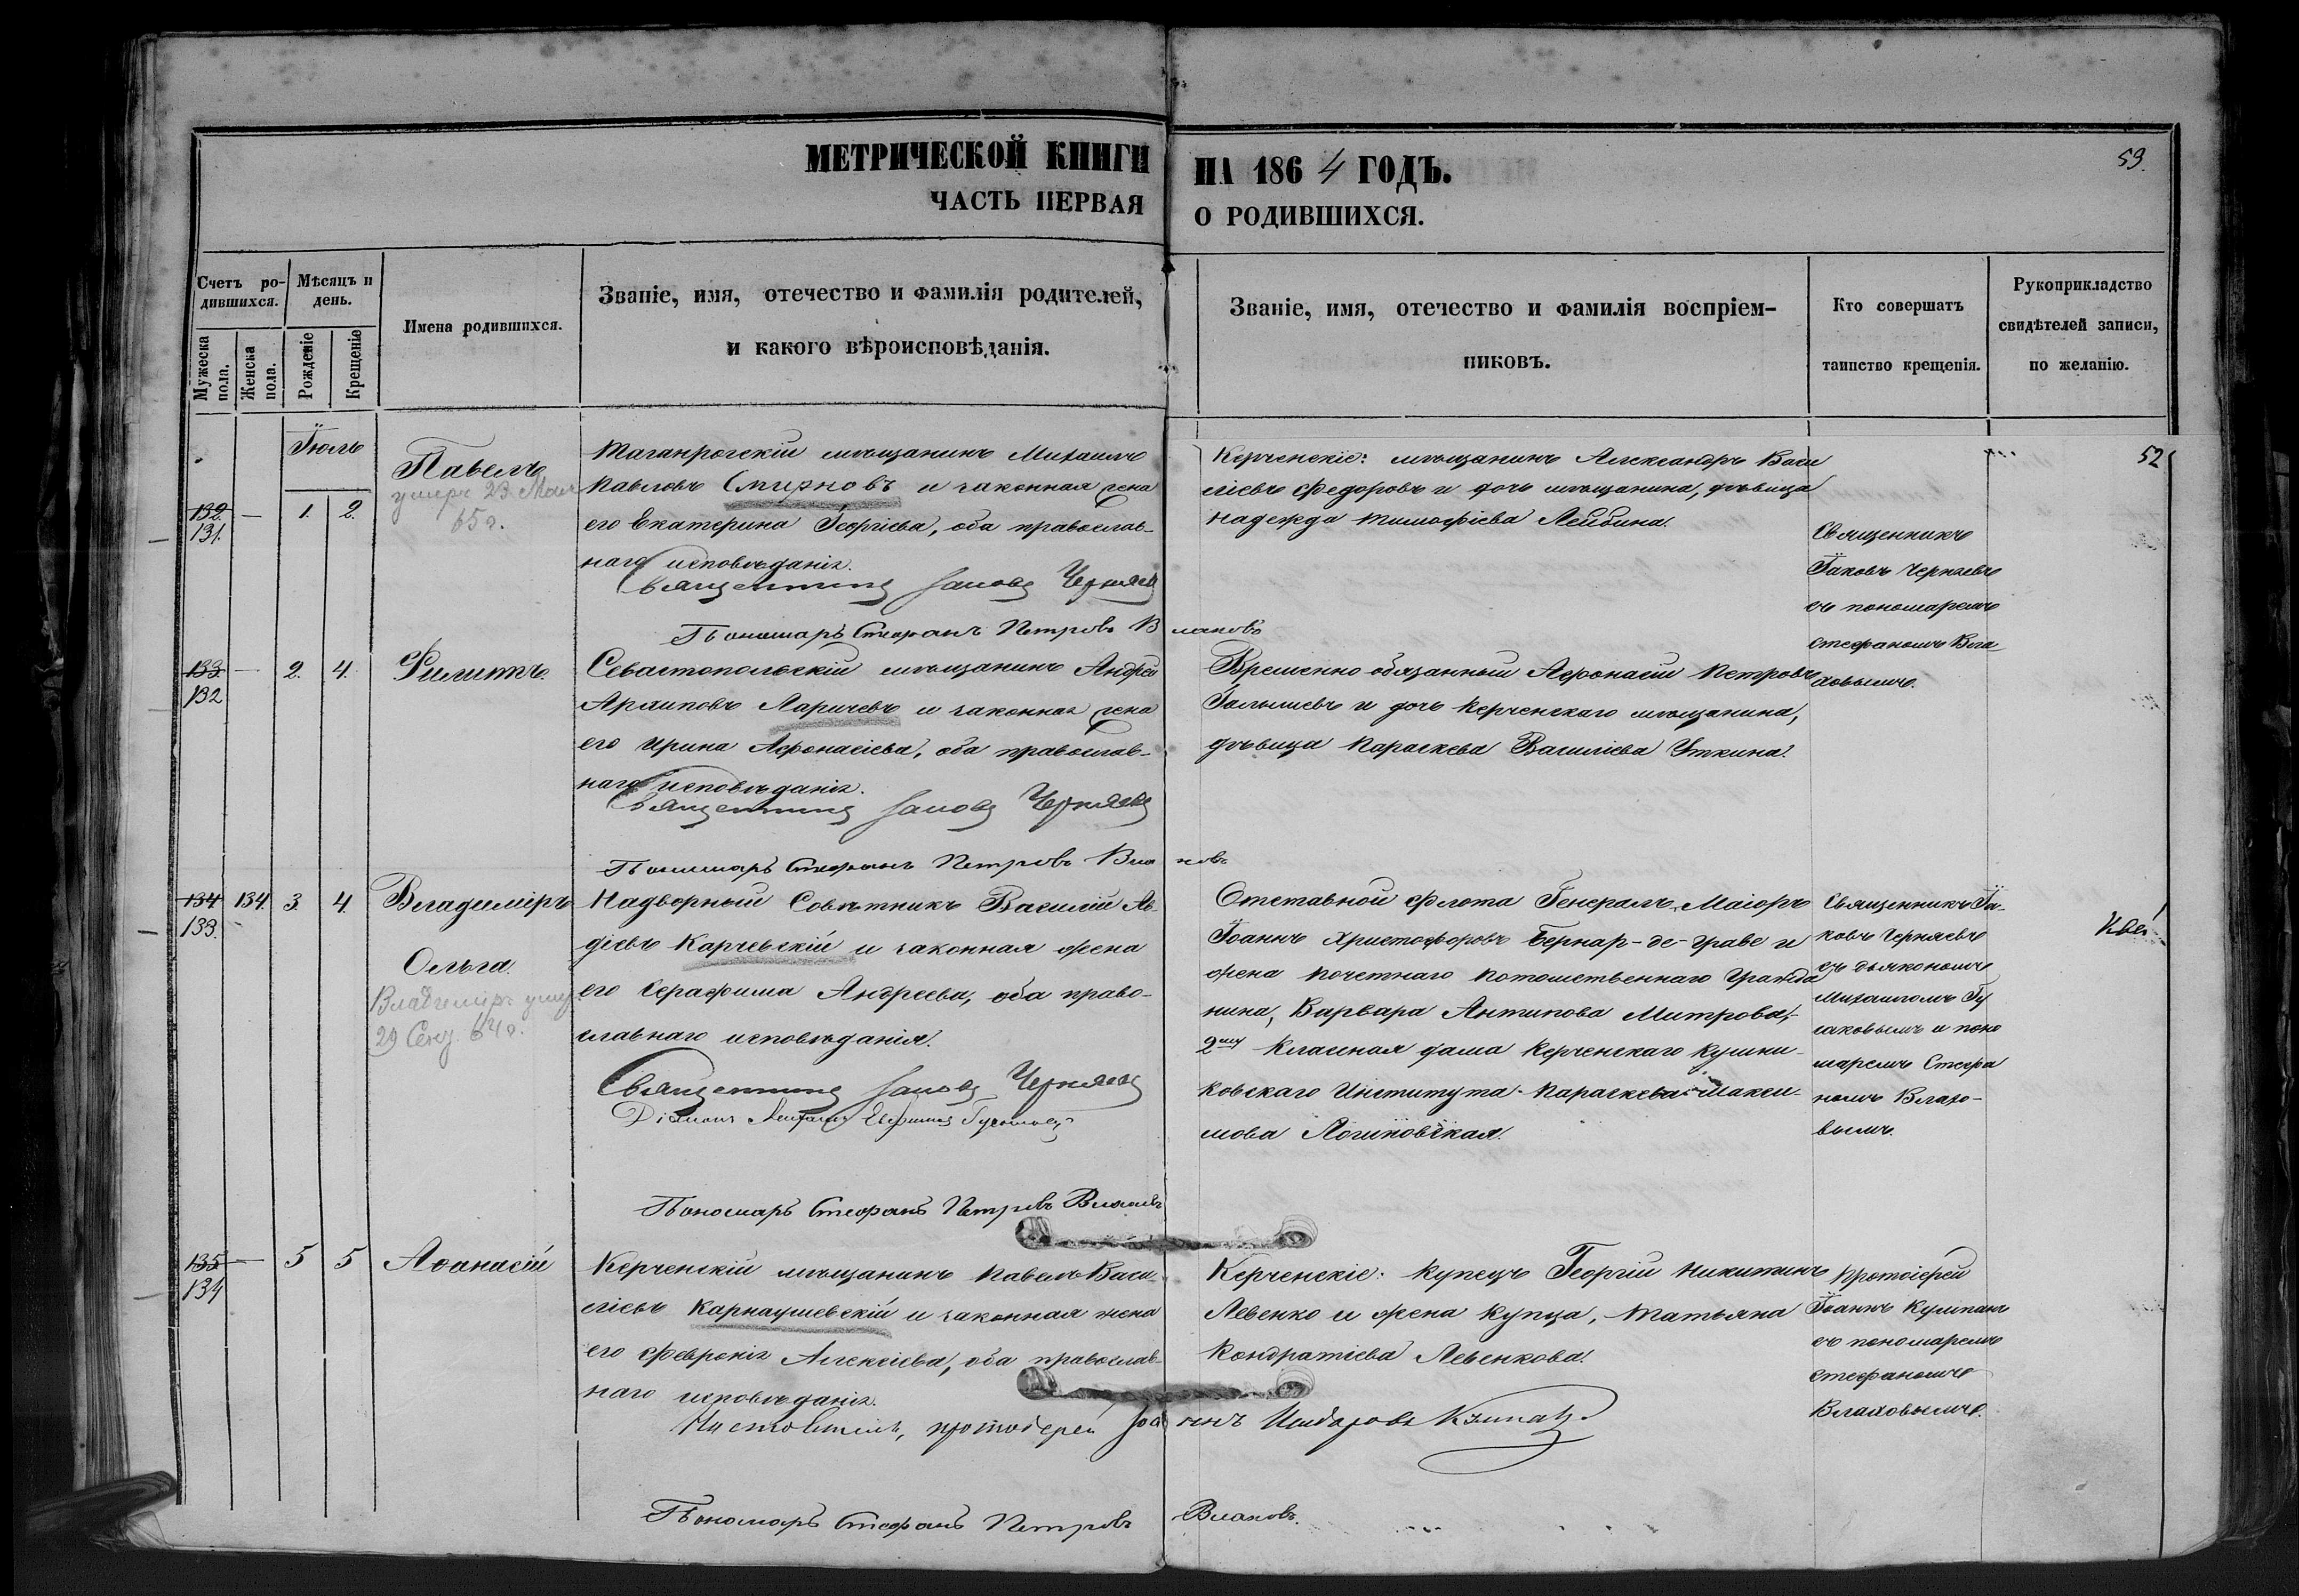 МЕТРИЧЕСКОЙ КНИГИ НА 1864 ГОДЪ.
59.
ЧАСТЬ ПЕРВАЯ О РОДИВШИХСЯ.
Счетъ ро-
дившихся.
Мѣсяцъ и
день.
Мужеска
пола.
Женска
пола.
Рожденіе
Крещеніе
Имена родившихся.
Званіе, имя, отечество и фамилія родителей,
и какого вѣроисповѣданія.
Званіе, имя, отечество и фамилія воспріем-
никовъ.
Кто совершатъ
таинство крещенія.
Рукоприкладство
свидѣтелей записи,
по желанію.
Іюль
52
132
131.
—
1.
2.
Павелъ
умеръ 23 Мая
65 г.
Таганрогскій мѣщанинъ Михаилъ
Павловъ Смирновъ и законная жена
его Екатерина Георгіева, оба православ-
наго исповѣданія.
Священникъ Іаковъ Черняевъ
Пономарь Стефанъ Петровъ Влаховъ
Керченскіе: мѣщанинъ Александръ Васи
ліевъ Федоровъ и дочь мѣщанина, дѣвица
Надежда Тимофіева Лейбина.
Священникъ
Іаковъ Черняевъ
съ пономаремъ
Стефаномъ Вла-
ховымъ.
133
132
—
2.
4.
Филиппъ.
Севастопольскій мѣщанинъ Андрей
Архиповъ Ларичевъ и законная жена
его Ирина Афонасіева, оба православ-
наго исповѣданія.
Священникъ Іаковъ Черняевъ
Пономарь Стефанъ Петровъ Влаховъ
Временно-обязанный Афонасій Петровъ
Галышевъ и дочь Керченскаго мѣщанина,
дѣвица Параскева Василіева Уткина.
134
133.
134.
3.
4.
Владиміръ
Ольга.
Владиміръ умер
29 Сен. 64 г.
Надворный Совѣтникъ Василій Ав-
діевъ Карчевскій и законная жена
его Серафима Андреева, оба право-
славнаго исповѣданія.
Священникъ Іаковъ Черняевъ
Діаконъ Михаилъ
Пономарь Стефанъ Петровъ Влаховъ
Отставной флота Генералъ Маіоръ
Іоаннъ Христофоровъ Бернар-де-Граве и
жена почетнаго потомственнаго Гражда
нина, Варвара Антипова Митрова,
2ой Классная дама Керченскаго Кушни-
ковскаго Института Параскева Макси-
мова Логиновская.
Священникъ Іа-
ковъ Черняевъ
съ дьякономъ
Михаиломъ Гу
саковымъ и поно
маремъ Стефа
номъ Влахо-
вымъ.
135
134
—
5
5
Аѳанасій
Керченскій мѣщанинъ Павелъ Васи-
ліевъ Карнаушевскій и законная жена
его Февронія Алексіева, оба православ-
наго исповѣданія.
Настоятель, протоіерей Іоаннъ
Пономарь Стефанъ Петровъ Влаховъ.
Керченскіе: купецъ Георгій Никитинъ
Левенко и жена купца, Татьяна
Кондратіева Левенкова.
Протоіерей
Іоаннъ Кумпанъ
съ пономаремъ
Стефаномъ
Влаховымъ.